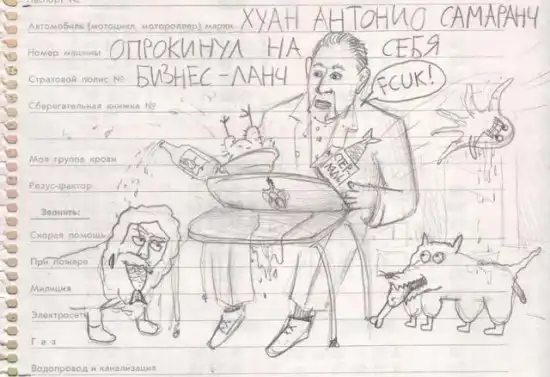 Паспорт №
Автомобиль (мотоцикл, мотороллер) марки ХУАН АНТОНИО САМАРАНЧ
Номер машины ОПРОКИНУЛ НА СЕБЯ
Страховой полис № БИЗНЕС-ЛАНЧ
FCUK!
Сберегательная книжка №
Моя группа крови
Резус-фактор
Звонить:
Скорая помощь
При пожаре
Милиция
Электросеть
Газ
Водопровод и канализация